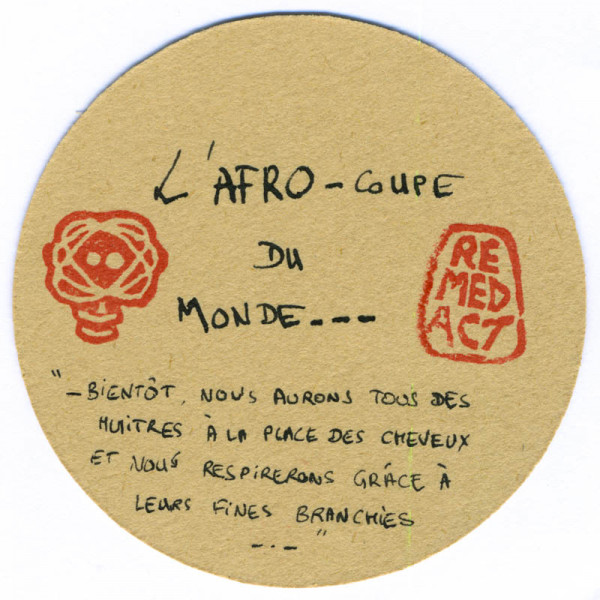 L'AFRO-COUPE
DU
MONDE---
RE
MED
ACT
"-BIENTÔT, NOUS AURONS TOUS DES
HUITRES À LA PLACE DES CHEVEUX
ET NOUS RESPIRERONS GRÂCE À
LEURS FINES BRANCHIES
-.-"